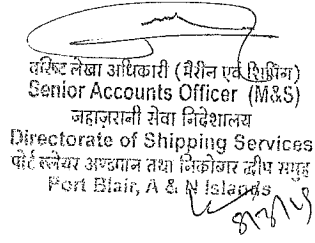 वरिष्ट लेखा अधिकारी (मैरीन एवं शिपिंग)
Senior Accounts Officer (M&S)
जहाज़रानी सेवा निदेशालय
Directorate of Shipping Services
पोर्ट ब्लेयर अण्डमान तथा निकोबार द्वीप समुह
Port Blair, A & N Islands